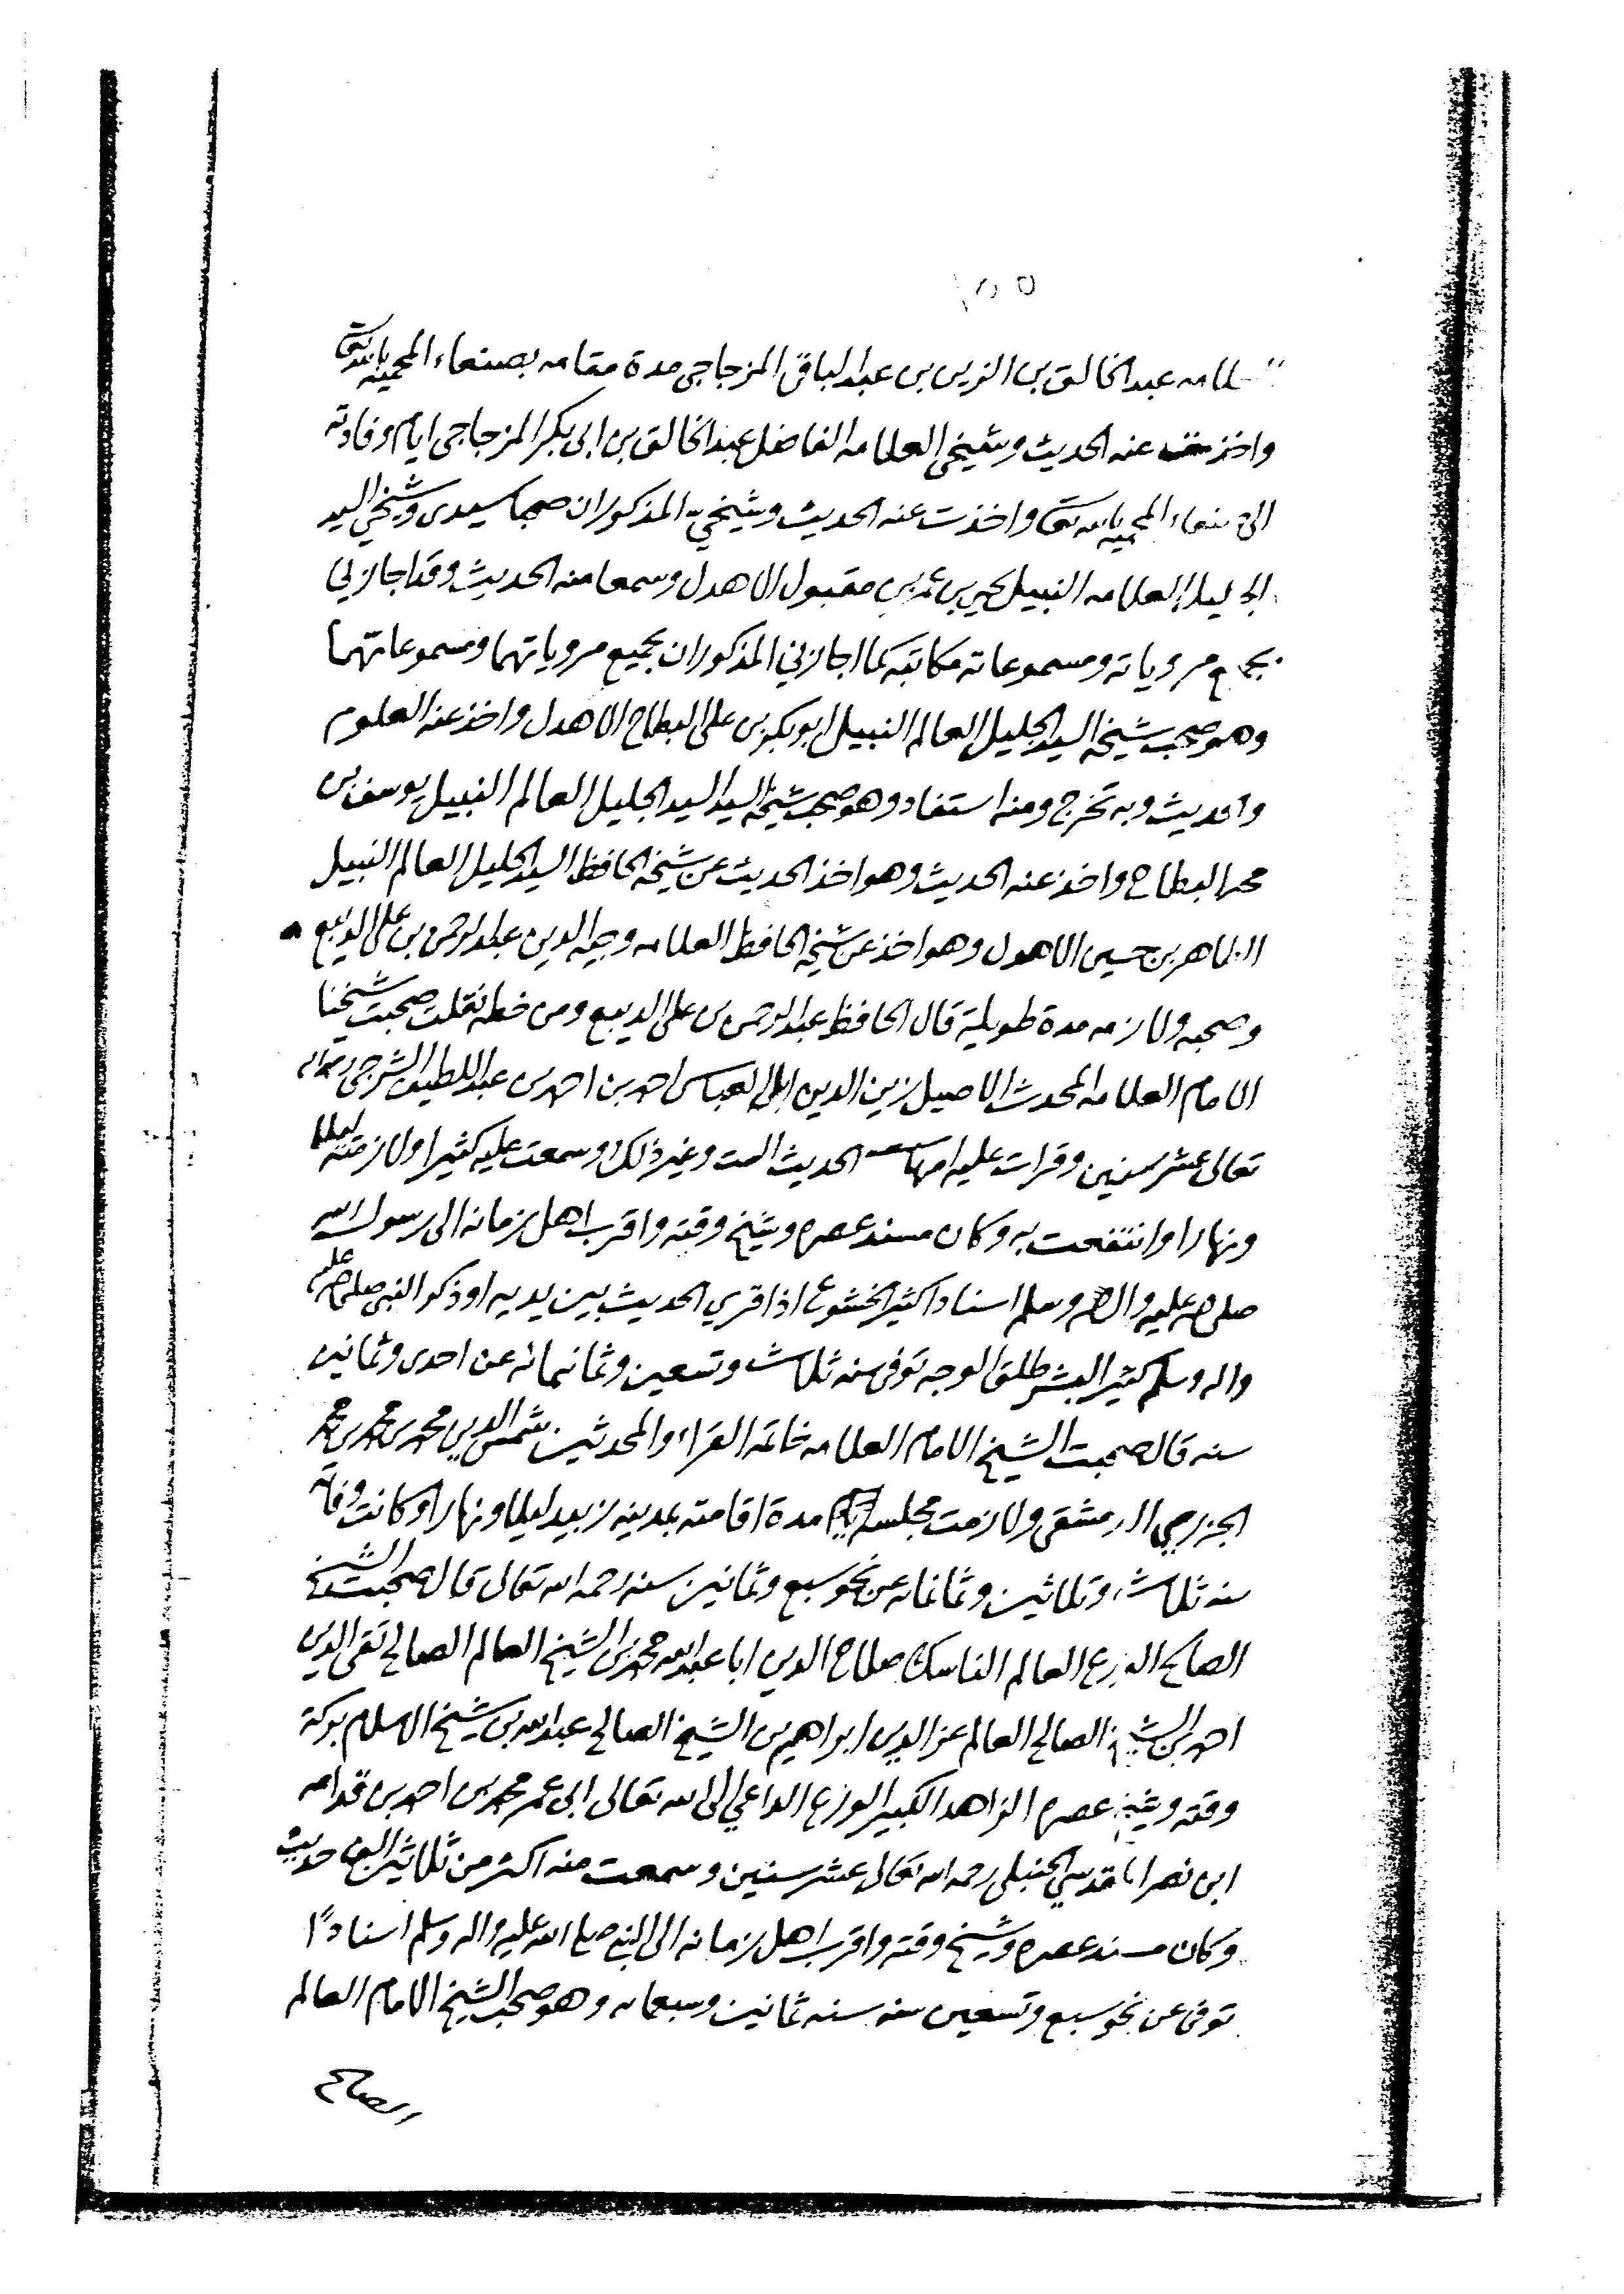 عبد الخالق بن الزين بن عبد الباقي المزجاجي مدة مقامه بصنعاء المحميه بالله تعالى
واخذت عنه الحديث وشيخي العلامه الفاضل عبد الخالق بن ابي بكر المزجاجي ايام وفادته
المحميه بالله تعالى واخذت عنه الحديث وشيخي المذكوران صحبا سيدي وشيخي السيد
الجليل العلامه النبيل يحيى بن عمر بن مقبول الاهدل وسمعا منه الحديث وقد اجازني
بجميع مروياته ومسموعاته مكاتبة كما اجازني المذكوران بجميع مروياتهما ومسموعاتهما
وهو صحب شيخه السيد الجليل العالم النبيل ابو بكر بن علي البطاح الاهدل واخذ عنه العلوم
والحديث وبه تخرج ومنه استفاد وهو صحب شيخه السيد السيد الجليل العالم النبيل يوسف بن
محمد البطاح واخذ عنه الحديث وهو اخذ الحديث عن شيخه الحافظ السيد الجليل العالم النبيل
الطاهر بن حسين الاهدل وهو اخذ عن شيخه الحافظ العلامه وجيه الدين عبد الرحمن بن علي الديبع
وصحبه ولازمه مدة طويلة قال الحافظ عبد الرحمن بن علي الديبع ومن خطه نقلت صحبت شيخنا
الامام العلامه المحدث الاصيل زين الدين ابا العباس احمد بن احمد بن عبد اللطيف الشرجي رحمه الله
تعالى عشر سنين وقرات عليه امهات الحديث الست وغير ذلك وسمعت عليه كثيرا ولازمته ليلا
ونهارا وانتفعت به وكان مسند عصره وشيخ وقته واقرب اهل زمانه الى رسول الله
صلى الله عليه واله وسلم اسنادا كثير الخشوع اذا قري الحديث بين يديه او ذكر النبي صلى الله عليه
واله وسلم كثير البشر طلق الوجه توفي سنه ثلاث وتسعين وثمانمائه عن احدى وثمانين
سنه قال صحبت الشيخ الامام العلامه خاتمه القراء والمحدثين شمس الدين محمد بن محمد بن محمد
الجزري الدمشقي ولازمت مجلسه مدة اقامته بمدينه زبيد ليلا ونهارا وكانت وفاته
سنه ثلاث وثلاثين وثمانمائه عن نحو سبع وثمانين سنه رحمه الله تعالى قال صحبت الشيخ
الصالح الورع العالم الناسك صلاح الدين ابا عبد الله محمد بن الشيخ العالم الصالح تقي الدين
احمد بن الشيخ الصالح العالم عز الدين ابراهيم بن الشيخ الصالح عبد الله بن شيخ الاسلام بركة
وقته وشيخ عصره الزاهد الكبير الورع الداعي الى الله تعالى ابي عمر محمد بن احمد بن قدامه
ابن نصر المقدسي الحنبلي رحمه الله تعالى عشر سنين وسمعت منه اكثر من ثلاثين الف حديث
وكان مسند عصره وشيخ وقته واقرب اهل زمانه الى النبي صلى الله عليه واله وسلم اسنادًا
توفي عن نحو سبع وتسعين سنه سنه ثمانين وسبعمائه وهو صحب الشيخ الامام العالم
الصالح